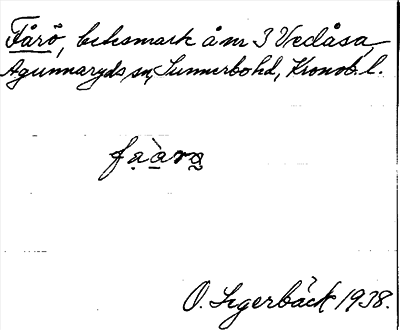 Fårö, behsmark å nr 3 Vedåsa,
Agunnaryds sn, Sunnerbo hd, Kronob. l.
faàrə
O. Segerbäck 1938.